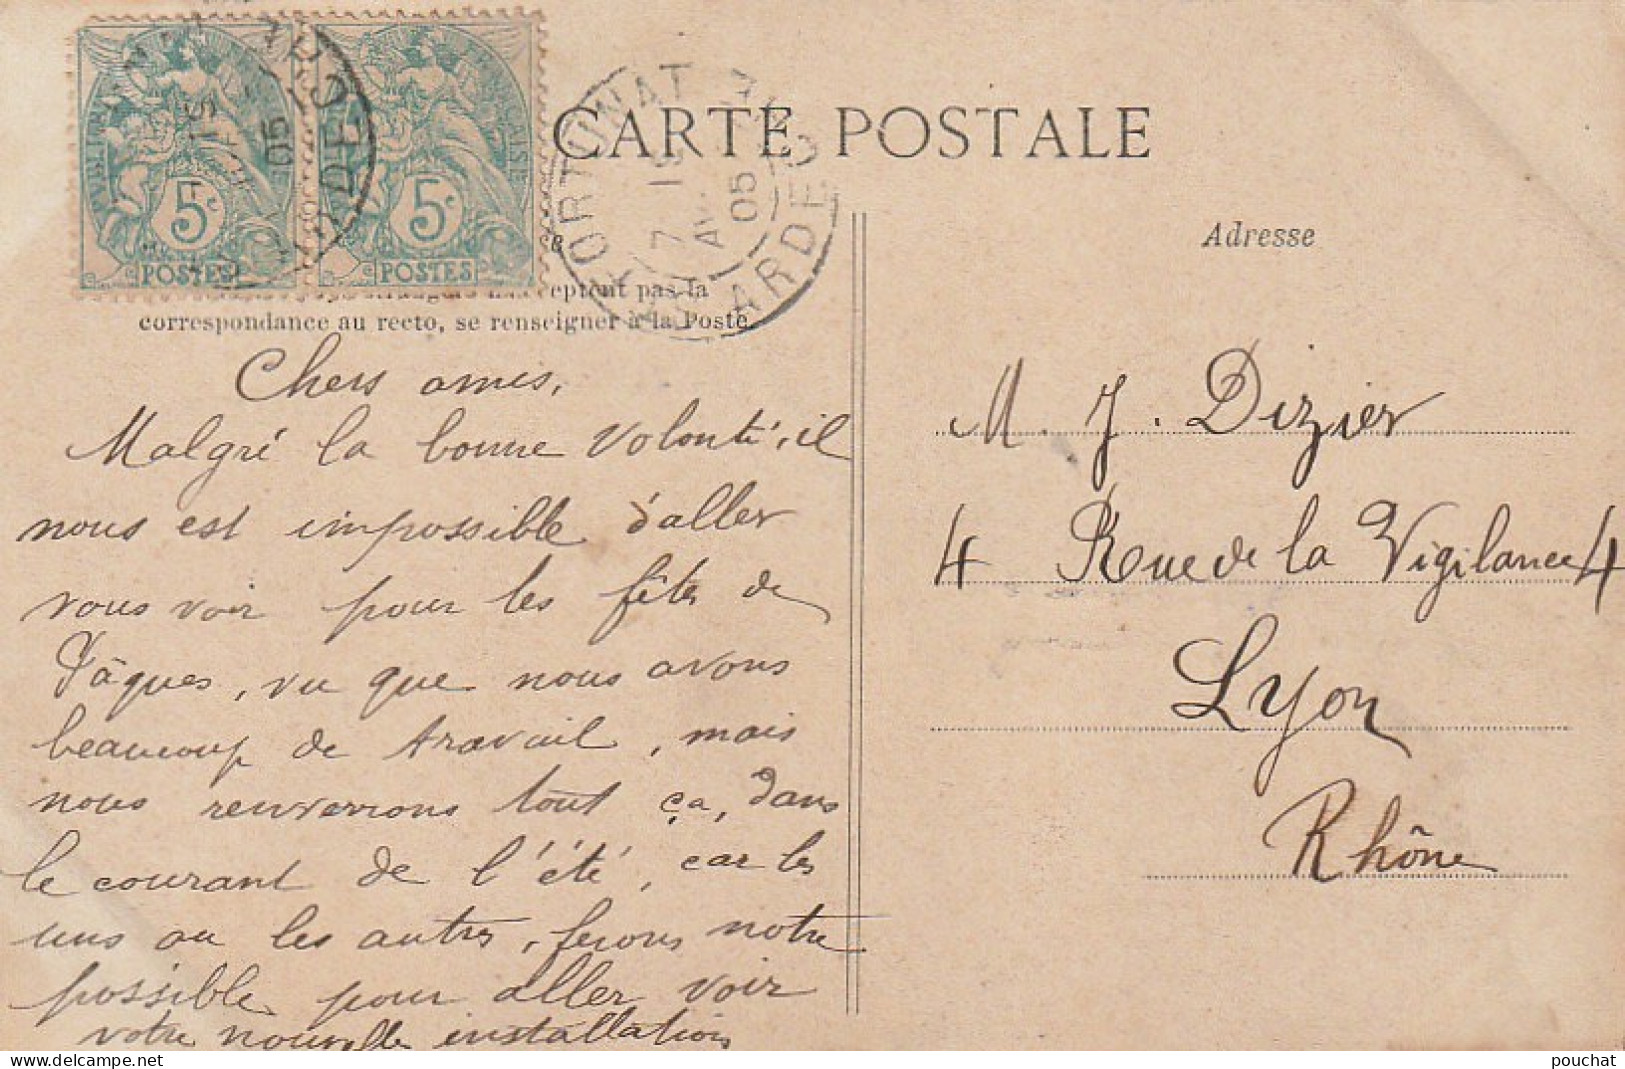 CARTE POSTALE
5c
POSTES
5c
POSTES
ARDÈCHE
ARDÈC
7 19
AV
05
Adresse
pas la
correspondance au recto, se renseigner à la Poste.
Chers amis,
Malgré la bonne volonté, il
nous est impossible d'aller
vous voir pour les fêtes de
Pâques, vu que nous avons
beaucoup de travail, mais
nous renverrons tout ça, dans
le courant de l'été, car les
uns ou les autres, ferons notre
possible pour aller voir
votre nouvelle installation
M. J. Dizier
4 Rue de la Vigilance 4
Lyon
Rhône
www.delcampe.net
pouchat